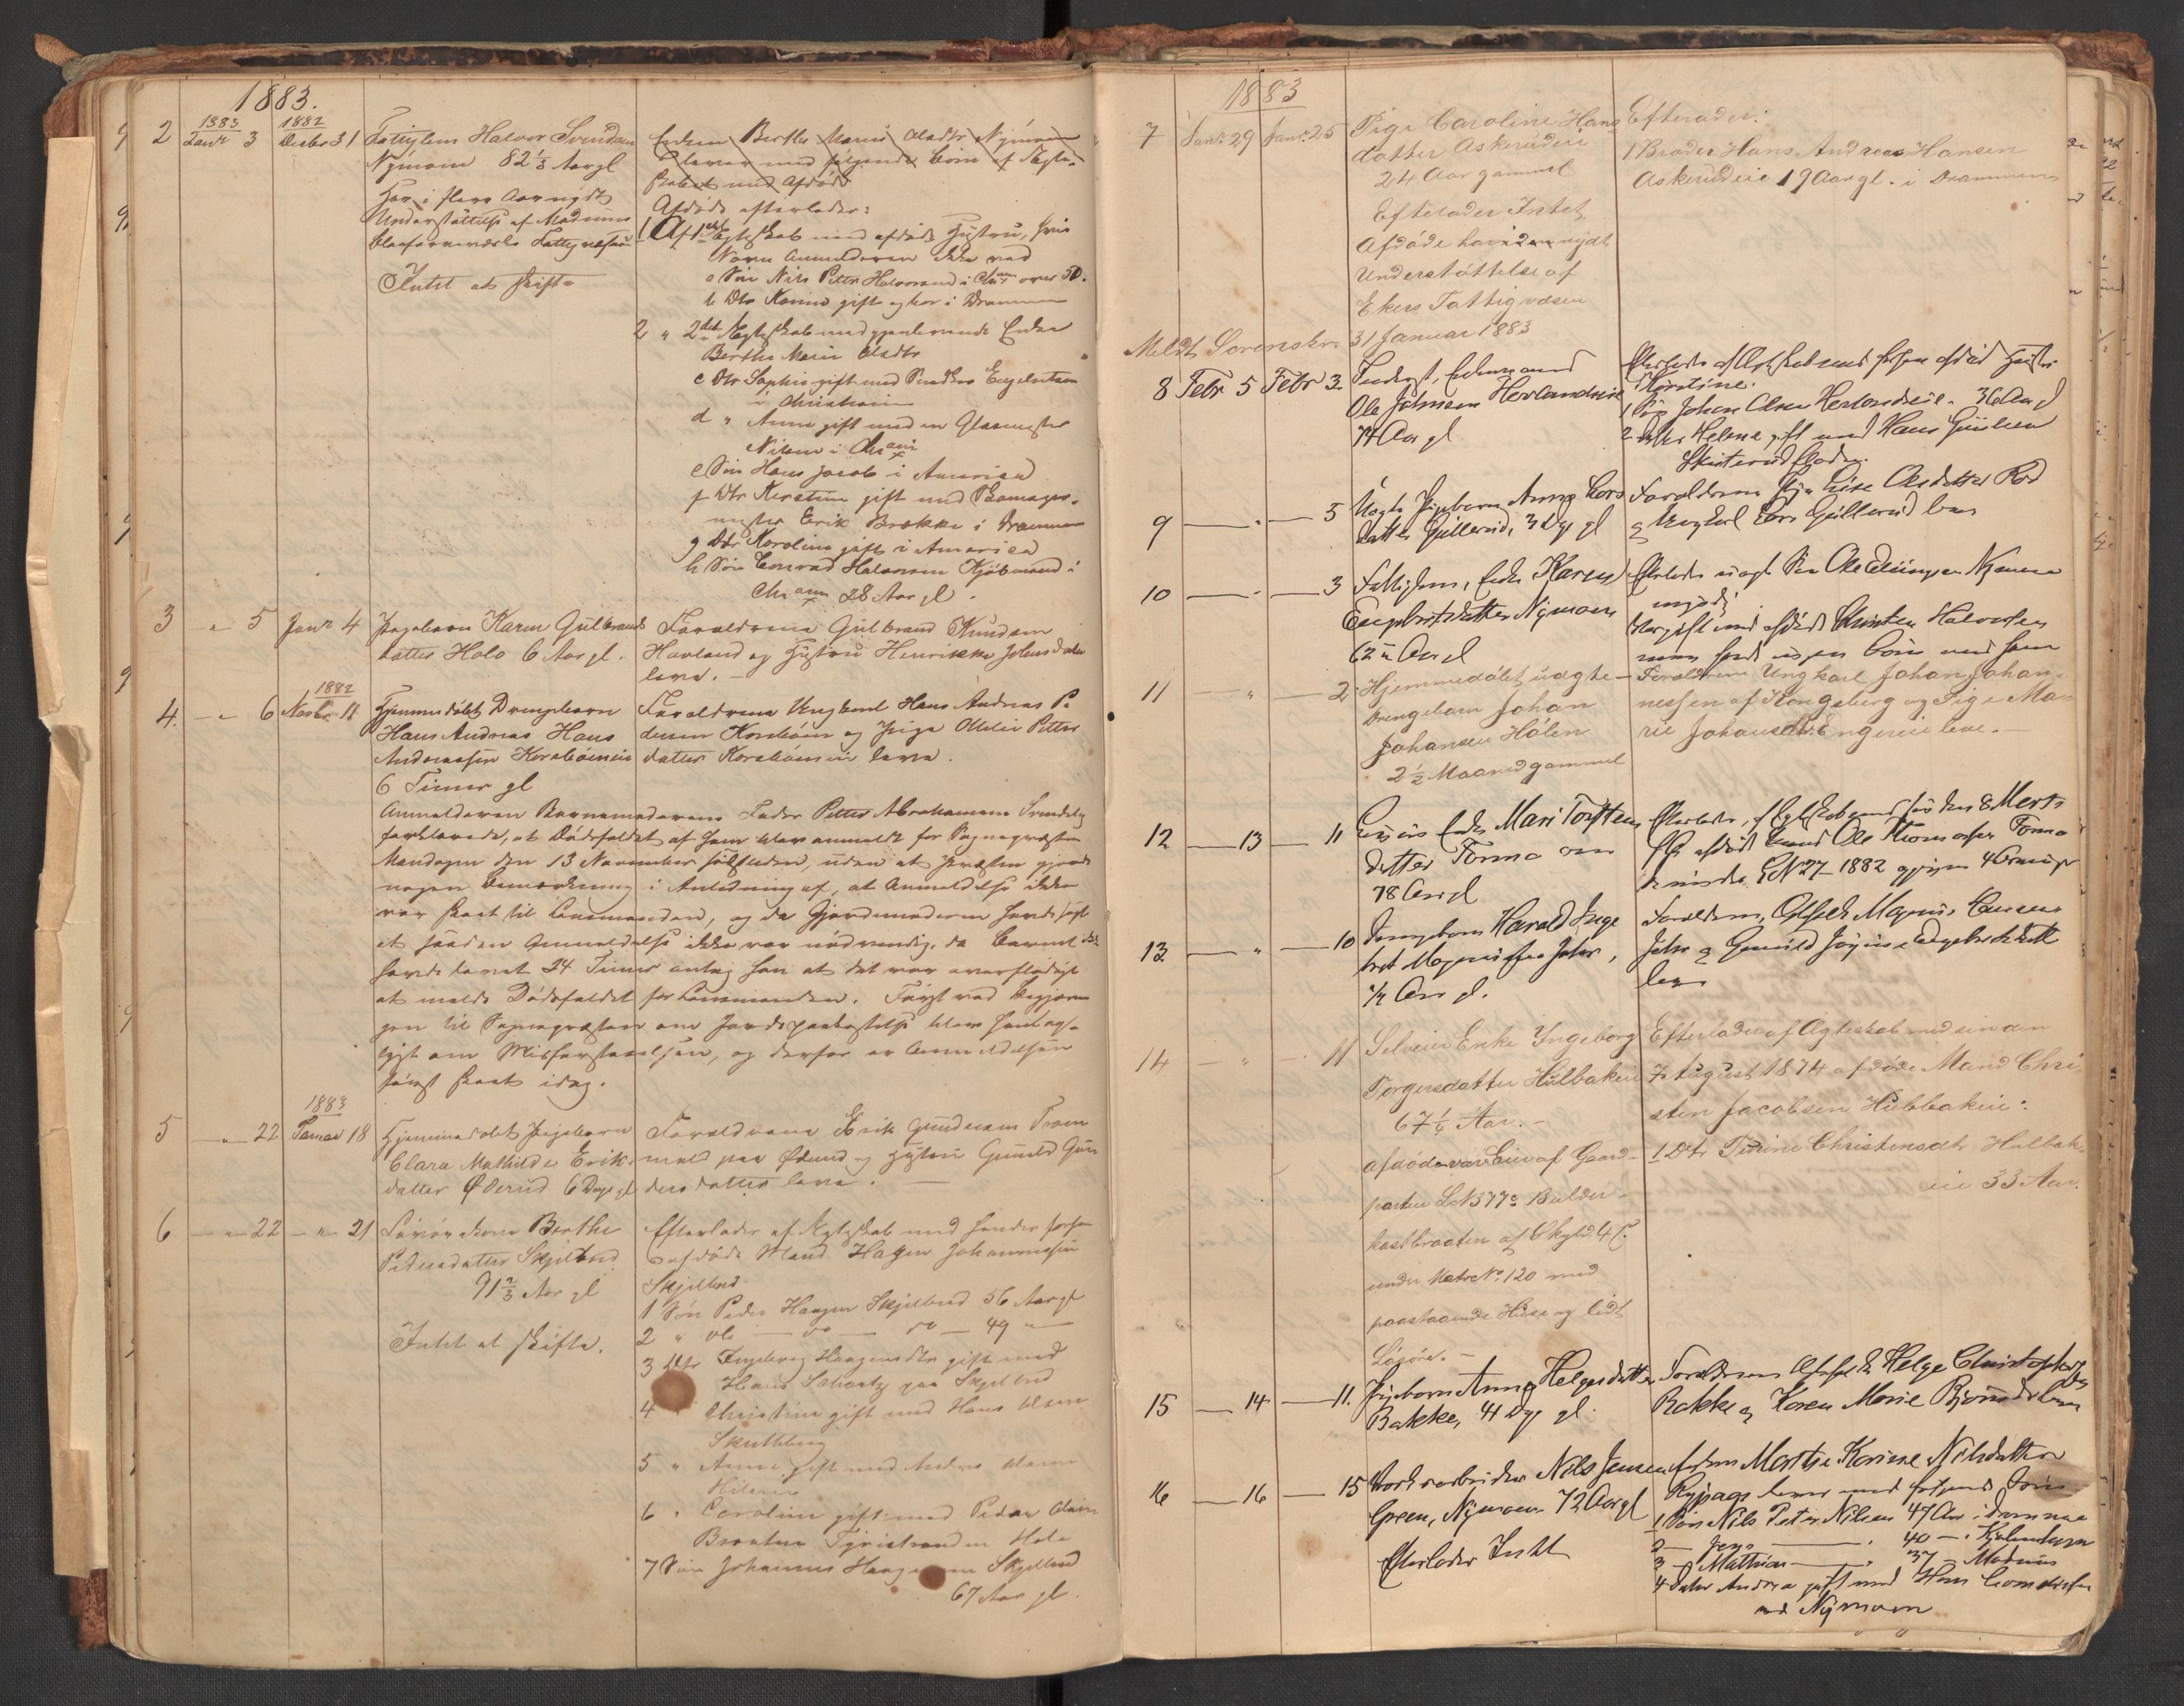 1883.
2 1883 Janr 3 1882 Decbr 31 Fattiglem Halvor Svendsen
Nymoen 82 1/3 Aar gl
Har i flere Aar nydt
Understøttelse af Modums
Blaafarveværks Fattigvæsen
Intet at skifte
Enken Berthe Marie Olsdtr Nymoen
lever med følgende Børn af Ægte-
skabet med Afdøde
Afdøde efterlader:
1 Af 1ste Ægteskab med afdøde Hustru, hvis
Navn Anmelderen ikke ved
a Søn Nils Petter Halvorsen i Chra over 50.
b Dtr Karine gift og bor i Drammen
2 " 2det Ægteskab med gjenlevende Enke
Berthe Marie Olsdtr
c Dtr Sophie gift med Engelutsen
i Christiania
d " Anne gift med en Glasmester
Nilsen i Chrania
e Søn Hans Jacob i America
f Dtr Kirstine gift med Skomager-
mester Erik Brække i Drammen
g Dtr Karoline gift i America
h Søn Conrad Halvorsen Kjøbmand i
Chrania 28 Aar gl.
3 " 5 Janr 4 Pigebarn Karen Gulbrands
datter Holo 6 Aar gl.
Forældrene Gulbrand Knudsen
Hovland og Hustru Henrikke Johnsdatter
leve. –
4. " 6 1882 Novbr 11 Hjemmedøbt Drengebarn
Hans Andreas Hans
Andreassen Korsbøeneie
6 Timer gl
Forældrene Ungkarl Hans Andreas Pe
dersen Korsbøen og Pige Olilie Petters
datter Korsbøeneie leve.
Anmelderen Barnemoderens Fader Petter Abrahamsen
forklarede, at Dødsfaldet af ham blev anmeldt for Sognepræsten
Mandagen den 13 November sidstleden, uden at Præsten gjorde
nogen Bemærkning i Anledning af, at Anmeldelse ikke
var skeet til Lensmanden, og da Gjordemoderen havde sagt
at saadan Anmeldelse ikke var nødvendig, da Barnet ikke
havde levet 24 Timer antog han at det var overflødigt
at melde Dødsfaldet for Lensmanden. Først ved Begjæ
gen til Sognepræsten om Jordspaakastelse blev han op-
lyst om Misforstaaelsen, og derfor er Anmeldelsen
først skeet idag.
5 " 22 1883 Januar 18 Hjemmedøbt Pigebarn
Clara Mathilde Eriks
datter Øderud 6 Dage gl
Forældrene Erik Gundersen Tram
mald paa Øderud og Hustru Gunild Gun
dersdatter leve. –
6 " 22 " 21 Berthe
Pedersdatter Skjelbred
91 2/3 Aar gl
Intet at skifte.
Efterlader af Ægteskab med hendes forhen
afdøde Mand Hagen Johannessen
Skjelbred
1 Søn Peder Haagen Skjelbred 56 Aar gl
2 " Ole – do – do – 49 " –
3 Dtr Ingeborg Haagensdtr gift med
Hans Schartz paa Skjelbred
4 " Christine gift med Hans Olsen
5 " Anne gift med Andres Olsen
6 " Caroline gift med Peder Olsen
Braaten Tyristranden Hole
7 Søn Johannes Haagensen Skjelbred
67 Aar gl.
1883
7 Janr. 29 Janr. 25 Pige Caroline Hans
datter Askerudeie
24 Aar gammel
Efterlader Intet.
Afdøde havde nydt
Understøttelse af
Ekers Fattigvæsen
Efterlader:
1 Broder Hans Andreas Hansen
Askerudeie 19 Aar gl. i Drammen
Meldt Sorenskr. 31 Januar 1883
8 Febr 5 Febr 3. Enkemand
Ole Johnsen Hovlandseie
74 Aar gl
Efterlader af Ægteskab med forhen afdød Hustru
Kirstine.
1 Søn Johan Olsen Hovlandseie. 36 Aar gl
2 Dtr Helene gift med Hans
9 – " – 5 Uægte Pigebarn Anne Lars
datter Gullerud, 3 Dg gl
Forældrene Pige Lise Olesdatter Rød
og Ungkarl Lars Gullerud leve
10 – " – 3 Fattiglem, Enke Karen
Engebretsdatter Nymoen
62 Aar gl
Efterlader uægte Søn Ole Nymoen
myndig
Var gift med afdøde Christen Halvorsen
men havde ingen Børn med ham
11 – " – 2 Hjemmedøbt uægte
Drengebarn Johan
Johansen Hølen
2 1/2 Maaned gammel
Forældrene Ungkarl Johan Johan
nessen af Kongsberg og Pige Ma-
rie Johansdtr Engerseie leve. –
12 – 13 – 11 Enke Mari Torstens
datter Tormo om
78 Aar gl
Efterlader, af Ægteskab med sin den 8 Marts
f. A. afdøde Mand Ole Thomassen Tormo
LN 27 – 1882
13 – " – 10 Drengebarn Harald Inge
bret Magnussen
1/2 Aar gl.
Forældrene, Magnus Hansen
og Gunild Engebretsdatt
leve
14 – " – 11 Selveier Enke Ingeborg
Torgersdatter Hulbakeie
67 1/4 Aar. –
afdøde var Eier af Gaard-
parten LN 377c Bulder-
kastbraaten af Skyld 4 ß
under Matr No. 120 med
paastaaende Huse og lidt
Løsøre. –
Efterlader af Ægteskab med sin den
7 August 1874 afdøde Mand Chri-
sten Jacobsen Hulbakeie:
1 Dtr. Turine Christensdtr Hulbak-
eie 33 Aar.
15 – 14 – 11. Pigebarn Anna Helgesdatter
Bakke, 4 Dg gl.
Forældrene Helge Christoffersen
Bakke og Karen Marie leve
16 – 16 – 15 Værksarbeider Nils Jensen
Green, Nymoen 72 Aar gl
Efterlader Intet
Enken Marthe Karine Nilsdatter
lever med følgende Børn
1 Søn Nils Peter Nilsen 47 Aar i Drammen
2 – Jens – " 40 –
3 – Mathias – " 37 – Modum
4 Datter Andrea gift med Hans
ved Nymoen